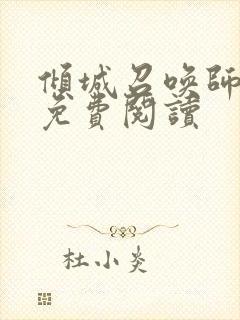 傾城召唤師
免費閱讀
杜小炎